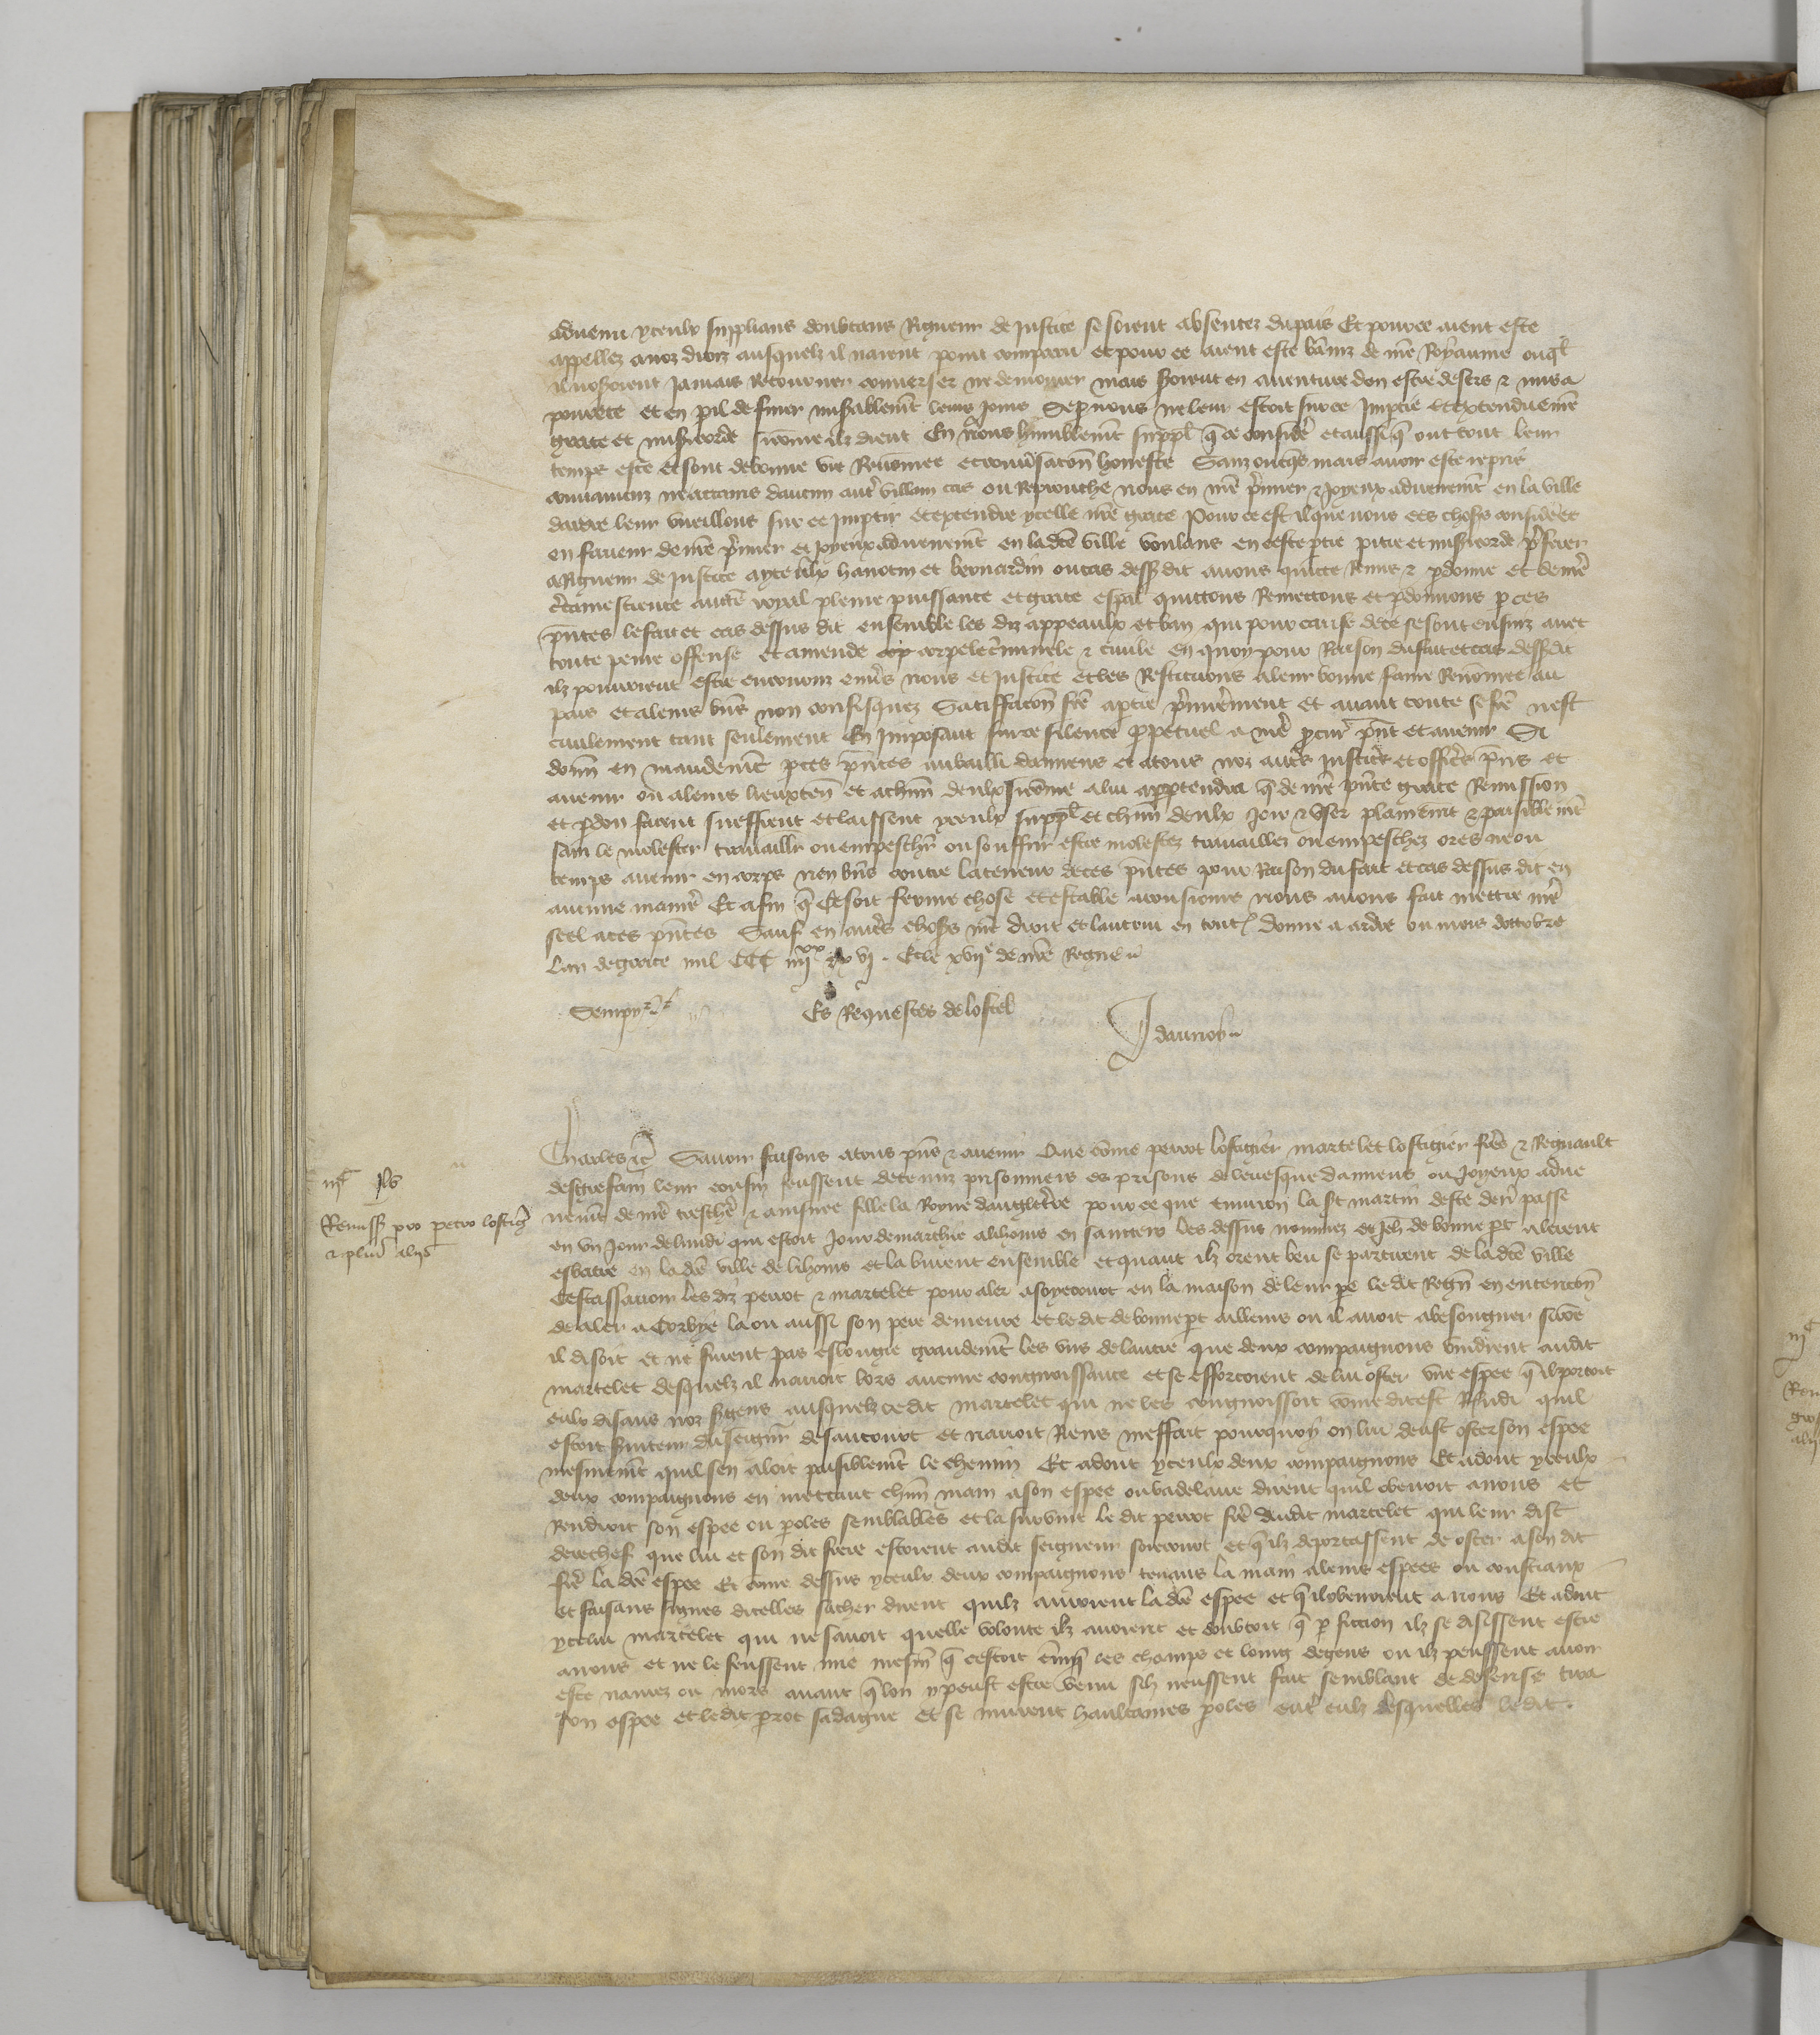 advenu yceulx supplians doubtans Rigueur de justice se soient absentez du pais Et pour ce aient este
appellez a noz droiz ausquelz il naient point comparu et pour ce aient este banniz de nre Royaume ouql
il noseroient jamais retourner converser ne demourer mais seroient en aventure don estre desers & mis a
povrete et en peril de finer miserablemt leurs jours Se p nous ne leur estoit sur ce Imptie et extendue nre
grace et misericorde sicome ilz dient En nous humblemt suppl que ce consideré et aussi q ont tout leur
temps esté et sont de bonne vie Renomee et conversacon honeste Sanz onqs mais avoir este repris
convaincuz ne attains daucun autre villain cas ou Reprouche nous en nre premier & joyeux advenemt en la ville
dardre leur vueillons sur ce imptir et extendre ycelle nre grace Pour ce est il que nous ces choses considerees
en faveur de nre premier et joyeux advenemt en ladce ville voulans en ceste ptie pitie et misericorde pferer
a Rigueur de Justice ayceulx hanotin et bernardin ou cas dessus dit avons quitte Remis & pdonne et de nre
ctaine science aucte royal plaine puissance et grace espal quittons Remettons et pdonnons p ces
pntes le fait et cas dessus dit ensemble les diz appeaulx et ban qui pour cause de ce se sont ensuiz avec
toute peine offense et amende corporele criminele & civile en quoy pour Raison du fait et cas dessusdit
ilz pourroient estre encouruz envers nous et justice et les Restituons a leur bonne fame Renomee au
pais et a leurs biens non confisquez Satiffacon fce a ptie premierement et avant toute se fce nest
civilement tant seulement En Imposant sur ce silence ppetuel a nre pcur pnt et avenir Si
donn en mandemt p ces pntes au bailli damiens et a tous noz autres justic et offic pns et
avenir ou a leurs lieuxten et a chun deulx sicome a lui apptendra q de nre pnte grace Remission
et pdon facent sueffrent et laissent yceulx suppl et chun deulx joir & user plainemt & paisiblemt
sanz le molester travaillr ou empeschr ou souffrir estre molestez travaillez ou empeschez ores ne ou
temps avenir en corps nen biens contre la teneur de ces pntes pour Raison du fait et cas dessus dit en
aucune maniere Et afin q ce soit ferme chose et estable a tousjours nous avons fait mettre nre
seel a ces pntes Sauf en autres choses nre droit et lautrui en toutes donne a ardre ou mois doctobre
Lan de grace mil CCC iiii xx xvj . Et le xvije de nre Regne
Es Requestes de lostel
Charles &c Savoir faisons a tous pns & avenir Que come perrot lostigier martelet lostigier freres & Regnault
leur cousin feussent detenuz prisonniers es prisons de levesque damiens ou joyeux adve
nemt de nre treschre & ainsnee fille la Royne dangleterre pour ce que environ la st martin deste dern passe
en un jour de lundi qui estoit jour de marchie a lihons en santers les dessus nommez et Jeh de bonne pt alerent
esbatre en ladce ville de lihons et la burent ensemble et quant ilz orent beu se partirent de ladce ville
Cestassavoir les diz perrot & martelet pour aler a soyecourt en la maison de leur pe le dit Regn en entencon
de aler a Corbye la ou aussi son pere demeure et le dit de bonne pt ailleurs ou il avoit a besongner sicoe
il disoit et ne furent pas eslongie grandemt les uns de lautre que deux compaignons vindrent audit
martelet desquelz il navoit lors aucune congnoissance et se efforcoient de lui oster une espee q il portoit
eulx disans noz sergens ausquelz le dit martelet qui ne les congnoissoit come dit est Rendi quil
estoit serviteur du seigneur de saucourt et navoit Riens meffait pourquoy on lui deust oster son espee
mesmemt quil sen aloit paisiblemt le chemin Et adont yceulx deux compaignons Et adont yceulx
deux compaignons en mettant chun main a son espee ou badelaire dirent quil venroit a nous et
Rendroit son espee ou paroles semblables et la survint le dit perrot fre dudit martelet qui leur dist
derechef que lui et son dit frere estoient audit seigneur soiecourt et q ilz deportassent de oster a son dit
fre ladce espee Et come dessus yceulx deux compaignons tenans la main a leurs espees ou coustiaux
et faisans signes dicelles sachier dirent quilz auroient ladce espee et q ilz venroient a nous Et adont
ycelui martelet qui ne savoit quelle volonte ilz avoient et doubtoit q p fiction ilz se disissent estre
a nous et ne le feussent mie mesm q cestoit emmy les champs et loing de gens ou ilz peussent avoir
este navrez ou mors avant q lon y peust estre venu silz neussent fait semblant de defense tira
son espee et le dit prot sa dague et se murent haultaines paroles entre eulz desquelles le dit
Remiss pro petro lostigr
& pluribus aliis